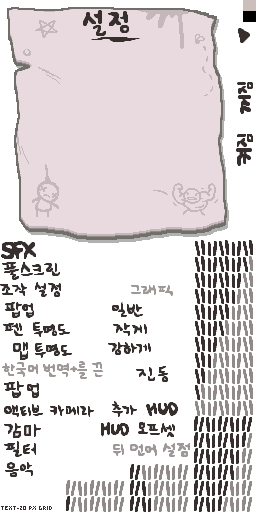 설정
지께
지께
SFX
풀스크린
조각 설정 그래픽
팝업 일반
펜 투명도 작게
맵 투명도 강하게
한국어 번역+를 끈
진동
팝업
액티브 카메라 추가 HUD
감마 HUD 오프셋
필터 뒤 먼어 설정
음악
TEXT-20 PX GRID